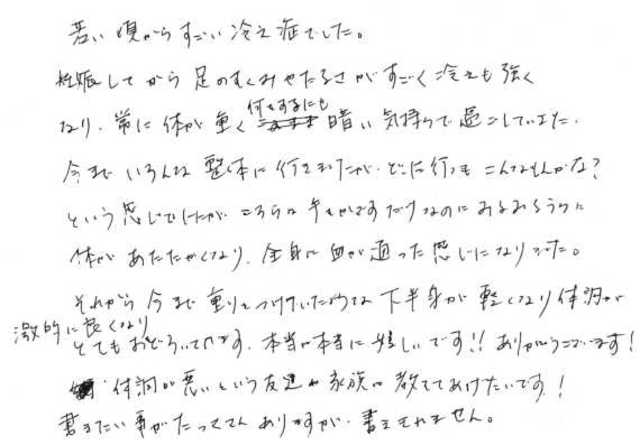 若い頃からすごい冷え症でした。
妊娠してから足のむくみやだるさがすごく冷えも強く
なり、常に体が重く何をするにも暗い気持ちで過ごしていました。
今までいろんな整体に行きましたが、どこに行ってもこんなもんかな？
という感じでしたが、こちらは手をかざすだけなのにみるみるうちに
体があたたかくなり、全身に血が通った感じになりました。
それから今まで重りをつけていたような下半身が軽くなり体調が
激的に良くなり
とてもおどろいています。本当に本当に嬉しいです!! ありがとうございます!
体調が悪いという友達や家族に教えてあげたいです!
書きたい事がたっくさんありますが、書ききれません。